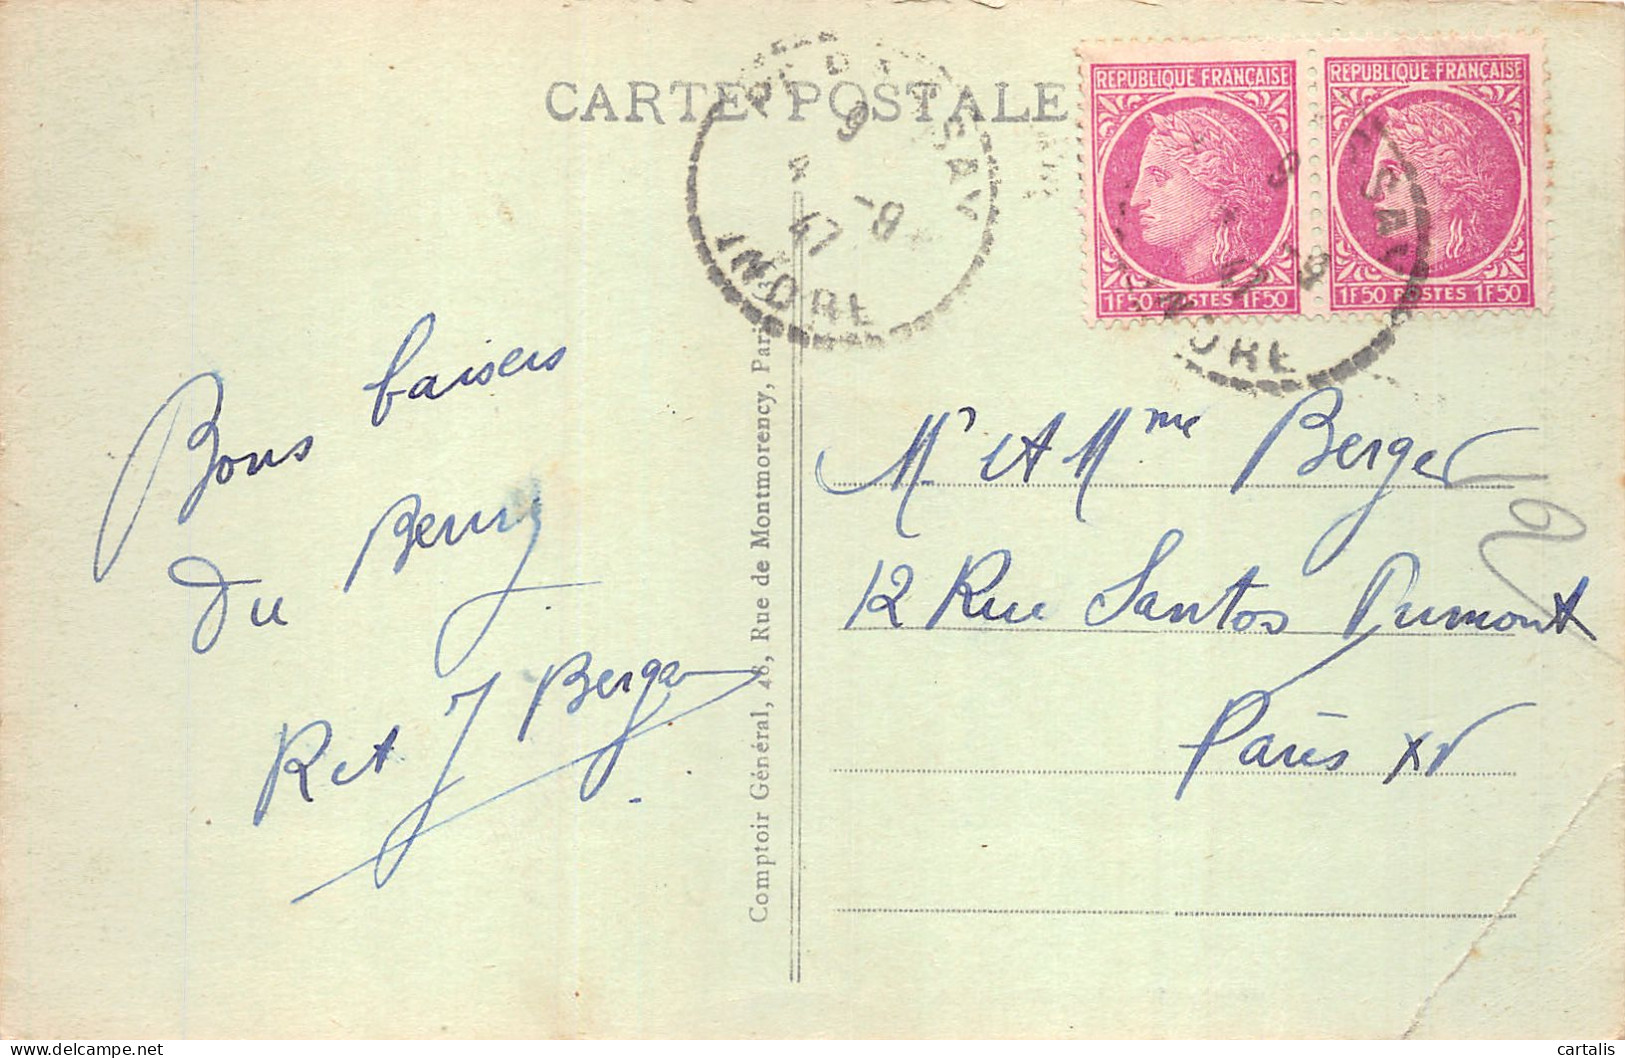 CARTE POSTALE
REPUBLIQUE FRANÇAISE
1F50 POSTES 1F50
REPUBLIQUE FRANÇAISE
1F50 POSTES 1F50
INDRE
Bons baisers
Du Berry
R et J Berger
Comptoir Général, 48, Rue de Montmorency, Paris
Mr et Mme Berger
12 Rue Santos Dumont
Paris XV
cartalis